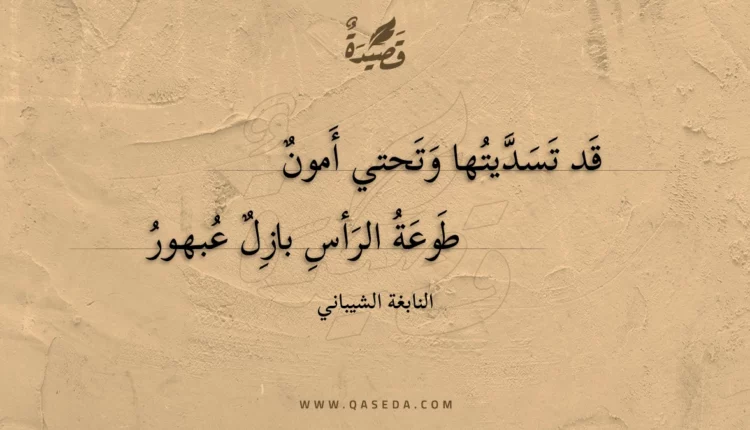 قَصيدَةٌ
قَد تَسَدَّيتُها وَتَحتي أَمونٌ
طَوعَةُ الرَأسِ بازِلٌ عُبهورُ
النابغة الشيباني
WWW.QASEDA.COM